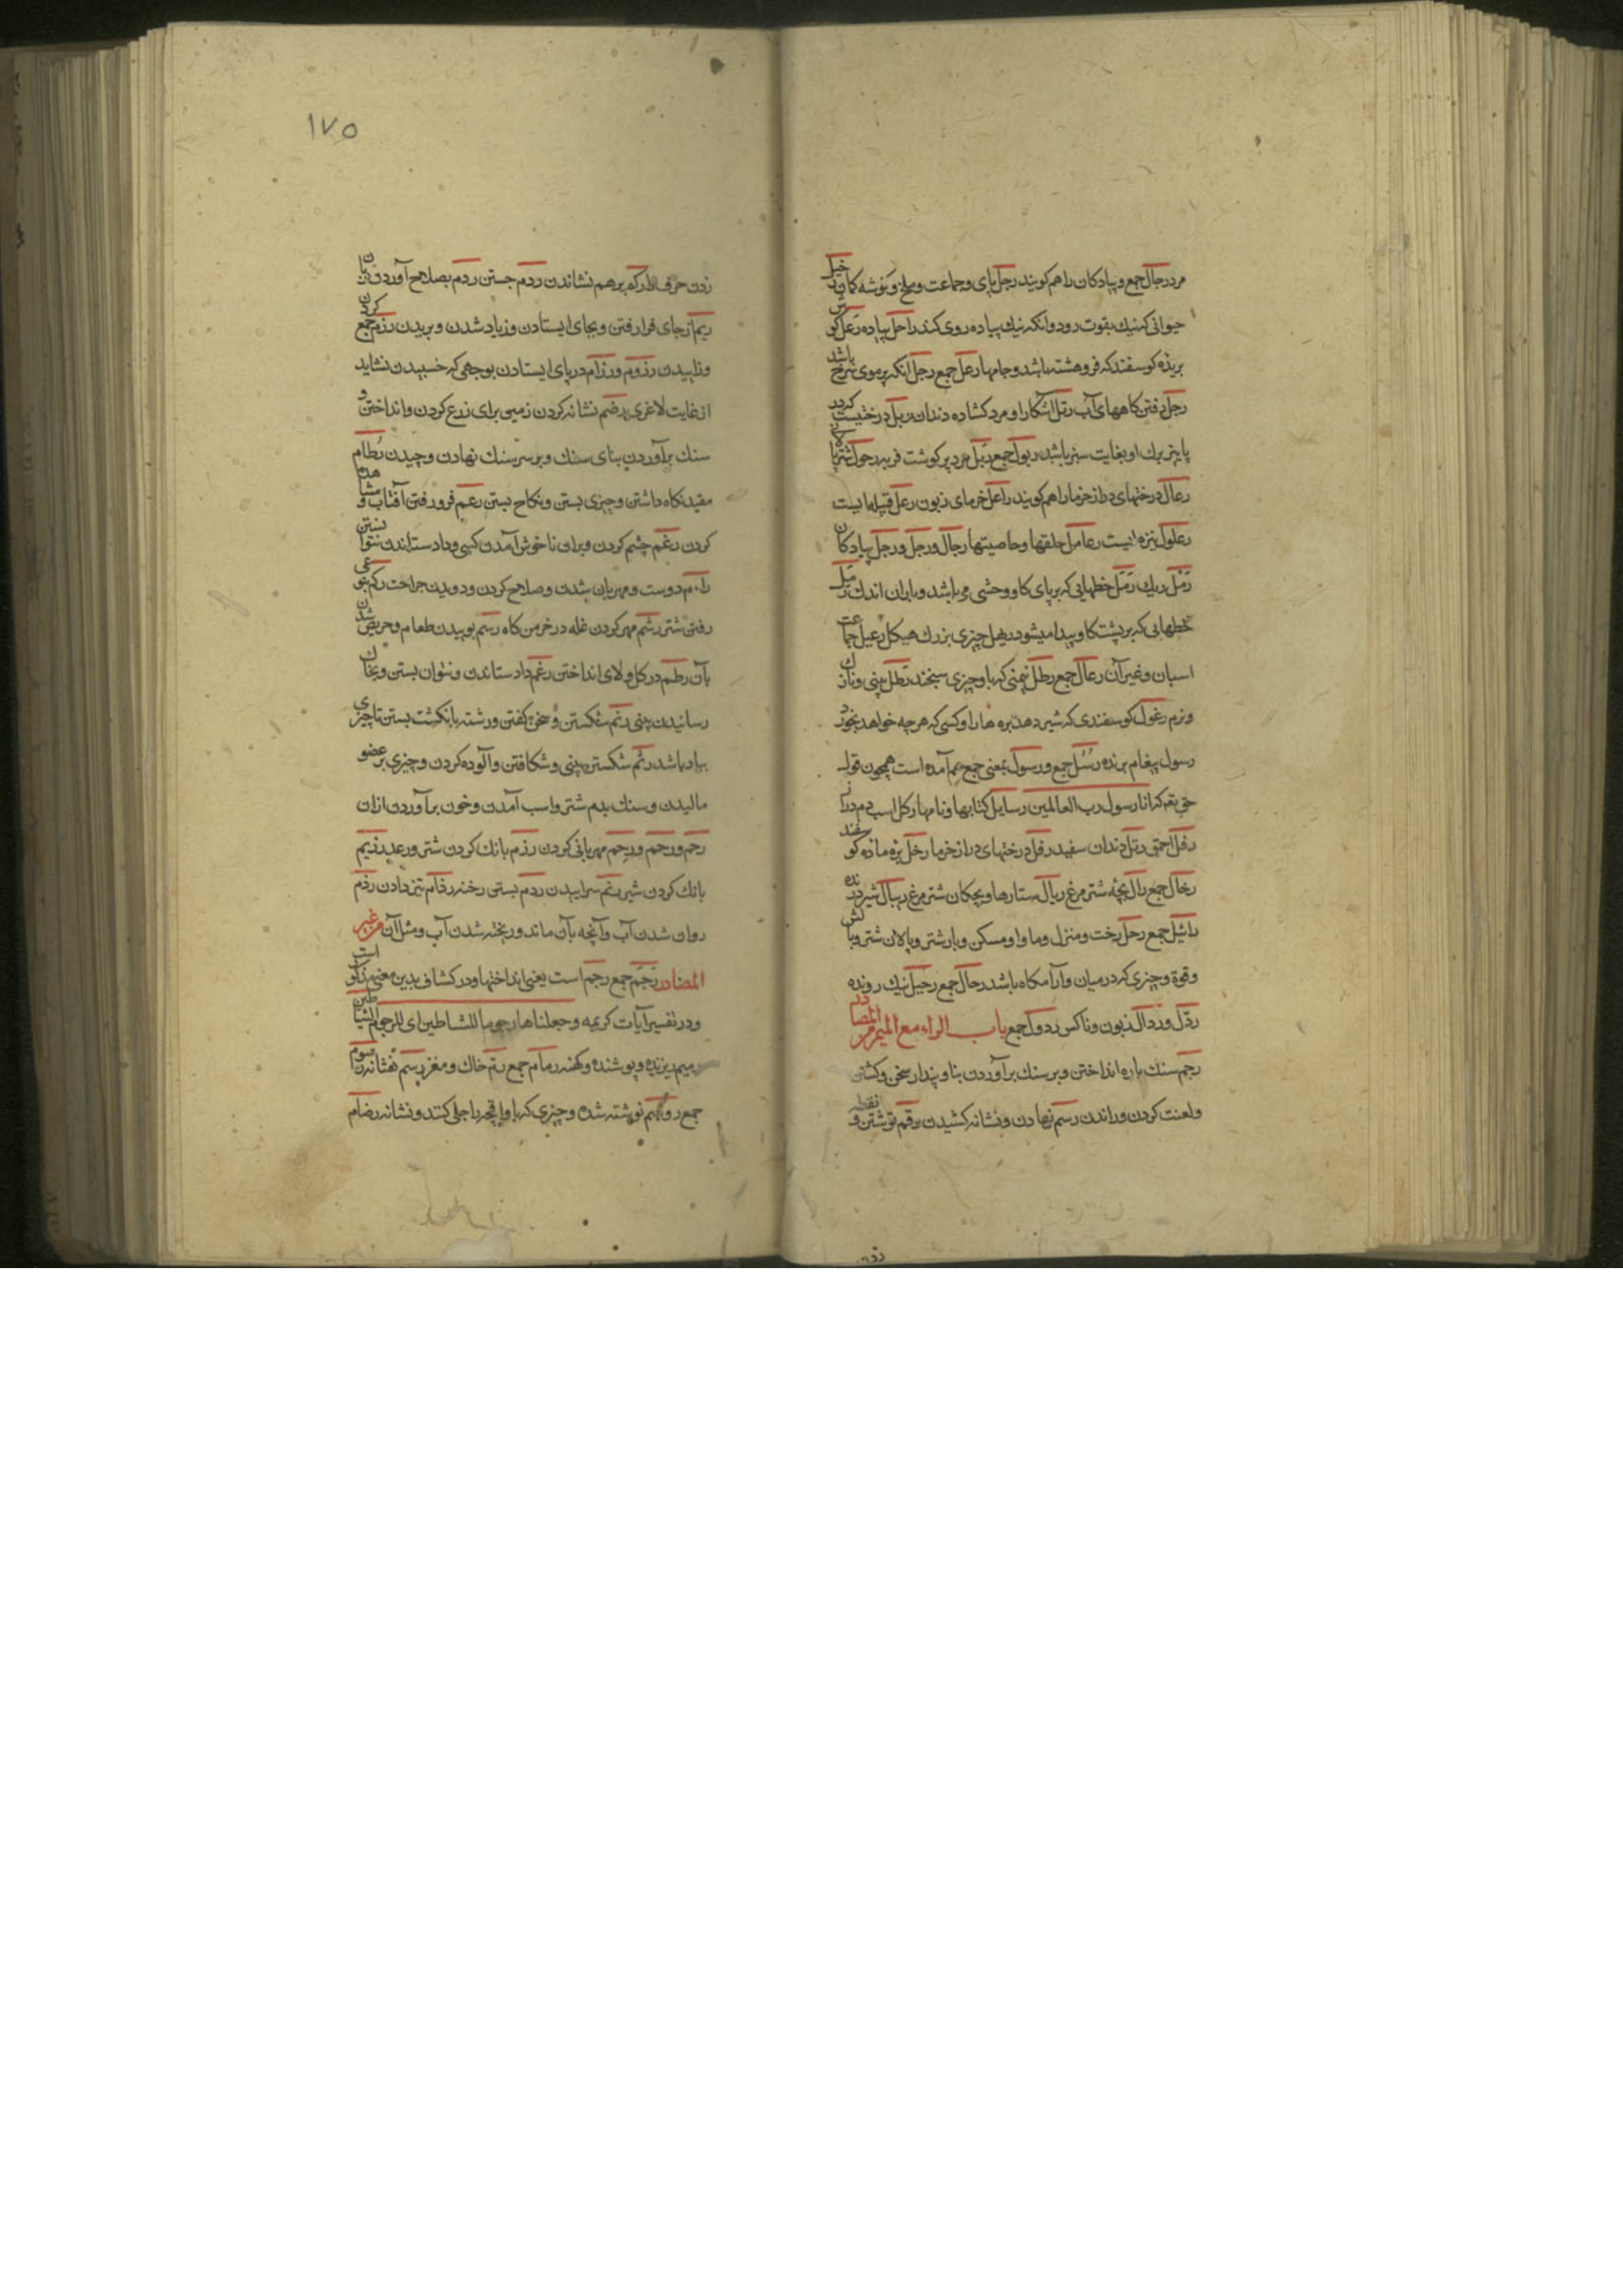 مرد رجال جمع و پیادکان را هم کویند رجل پای و جماعت و ملخ و کوشه کمان
حیوانی که نیك بقوت رود و انکه نیك پیاده روی کند راحل پیاده رعل کو
بریده کوسفند که فروهشته باشد و جامها رعل جمع رجل انکه بر موی سرخ باشد
رجل رفتن کاههای آب رتل آشکارا و مرد کشاده دندان ربل درختیست
پاییز برك او بغایت سبز باشد ربول جمع ربل مرد پر کوشت فربه رحول شتر با
رعال درختهای دراز خرما را هم کویند راعل خرمای زبون رعل قبیله ایست
رعلول تره ایست رعامل حلقها و خاصیتها رجال و رجل و رجل پیادکان
رمل ریك رمل خطهایی که بر پای کاو وحشی می باشد و باران اندك رمل
خطهایی که بر پشت کاو پیدا میشود رهل چیزی بزرك هیکل رعیل جماعت
اسبان و غیر آن رعال جمع رطل نیم منی که با و چیزی سنجند رطل ینی و نازك
و نرم رغول کوسفندی که شیر دهد بره ها را و کسی که هر چه خواهد بخورد
رسول پیغام برنده رسل جمع و رسول بمعنی جمع هم آمده است همچون قوله
حق تعه که انا رسول رب العالمین رسایل کتابها و نامها رکل اسب دم دراز
رفل احمق رتل دندان سفید رقل درختهای دراز خرما رخل بره ماده کوسفند
رخال جمع رال بچه شتر مرغ ریال ستارها و بچکان شتر مرغ ریبال شیر درنده
راثیل جمع رحل رخت و منزل و ماوا و مسکن و بار شتر و پالان شتر و بالش
وقوة و چیزی که در میان و آرامکاه باشد رحال جمع رحیل نیك رونده
رذل و رذال زبون و ناکس رذول جمع باب الراء مع المیم من المصادر
رجم سنك پاره انداختن و بر سنك بر آوردن بنا و پندار سخن و کشتن
و لعنت کردن و راندن رسم نهادن و نشانه کشیدن رقم نوشتن و نقطه
۱۷۵
زدن حرف را رکم بر هم نشاندن ردم جستن ردم بصلاح آوردن
ریم از جای فرا رفتن و بجای ایستادن و زیاد شدن و بریدن رزم جمع کردن
و زاییدن رزوم و رزام در پای ایستادن بوجهی که خسبیدن نشاید
از غایت لاغری رضم نشانه کردن زمین برای زرع کردن و انداختن و
سنك بر آوردن بنای سنك و بر سر سنك نهادن و چیدن رطام
مقید نکاه داشتن و چیزی بستن و نکاح بستن رعم فرو رفتن آفتاب و مشاهده
کردن رغم چشم کردن و بران ناخوش آمدن کسی و داد ستاندن نتوانستن
راءم دوست و مهربان شدن و صلاح کردن و دویدن جراحت رکم بنوعی
رفتن شتر رشم مهر کردن غله در خرمن کاه رسم بوییدن طعام و حریص شدن
بآن رطم در کل و لای انداختن رغم داد ستاندن و نتوان بستن و بخاك
رسانیدن بینی رتم شکستن و سخن کفتن و رشته بانکشت بستن تا چیزی
بیاد باشد رثم شکستن بینی و شکافتن و آلوده کردن و چیزی بر عضو
مالیدن و سنك بدم شتر و اسب آمدن و خون بر آوردن ازان
رحم و رحم و رحم مهربانی کردن رزم بانك کردن شتر و رعد رزیم
بانك کردن شیر رنم سراییدن ردم بستن رخنه رذام تیز دادن رذم
روان شدن آب و آنچه بآن ماند و ریخته شدن آب و مثل آن من غیر
المصادر رجم جمع رجم است یعنی انداختها و در کشاف بدین معنی مذکور است
و در تفسیر آیات کریمه و جعلناها رجوما للشیاطین ای للرجم الشیاطین
رمیم ریزیده و پوشنده و کهنه رمام جمع رتم خاك و مغز رسم نشانه رسوم
جمع رقیم نوشته شده و چیزی که با و اقچه با جلی کنند و نشانه رضام